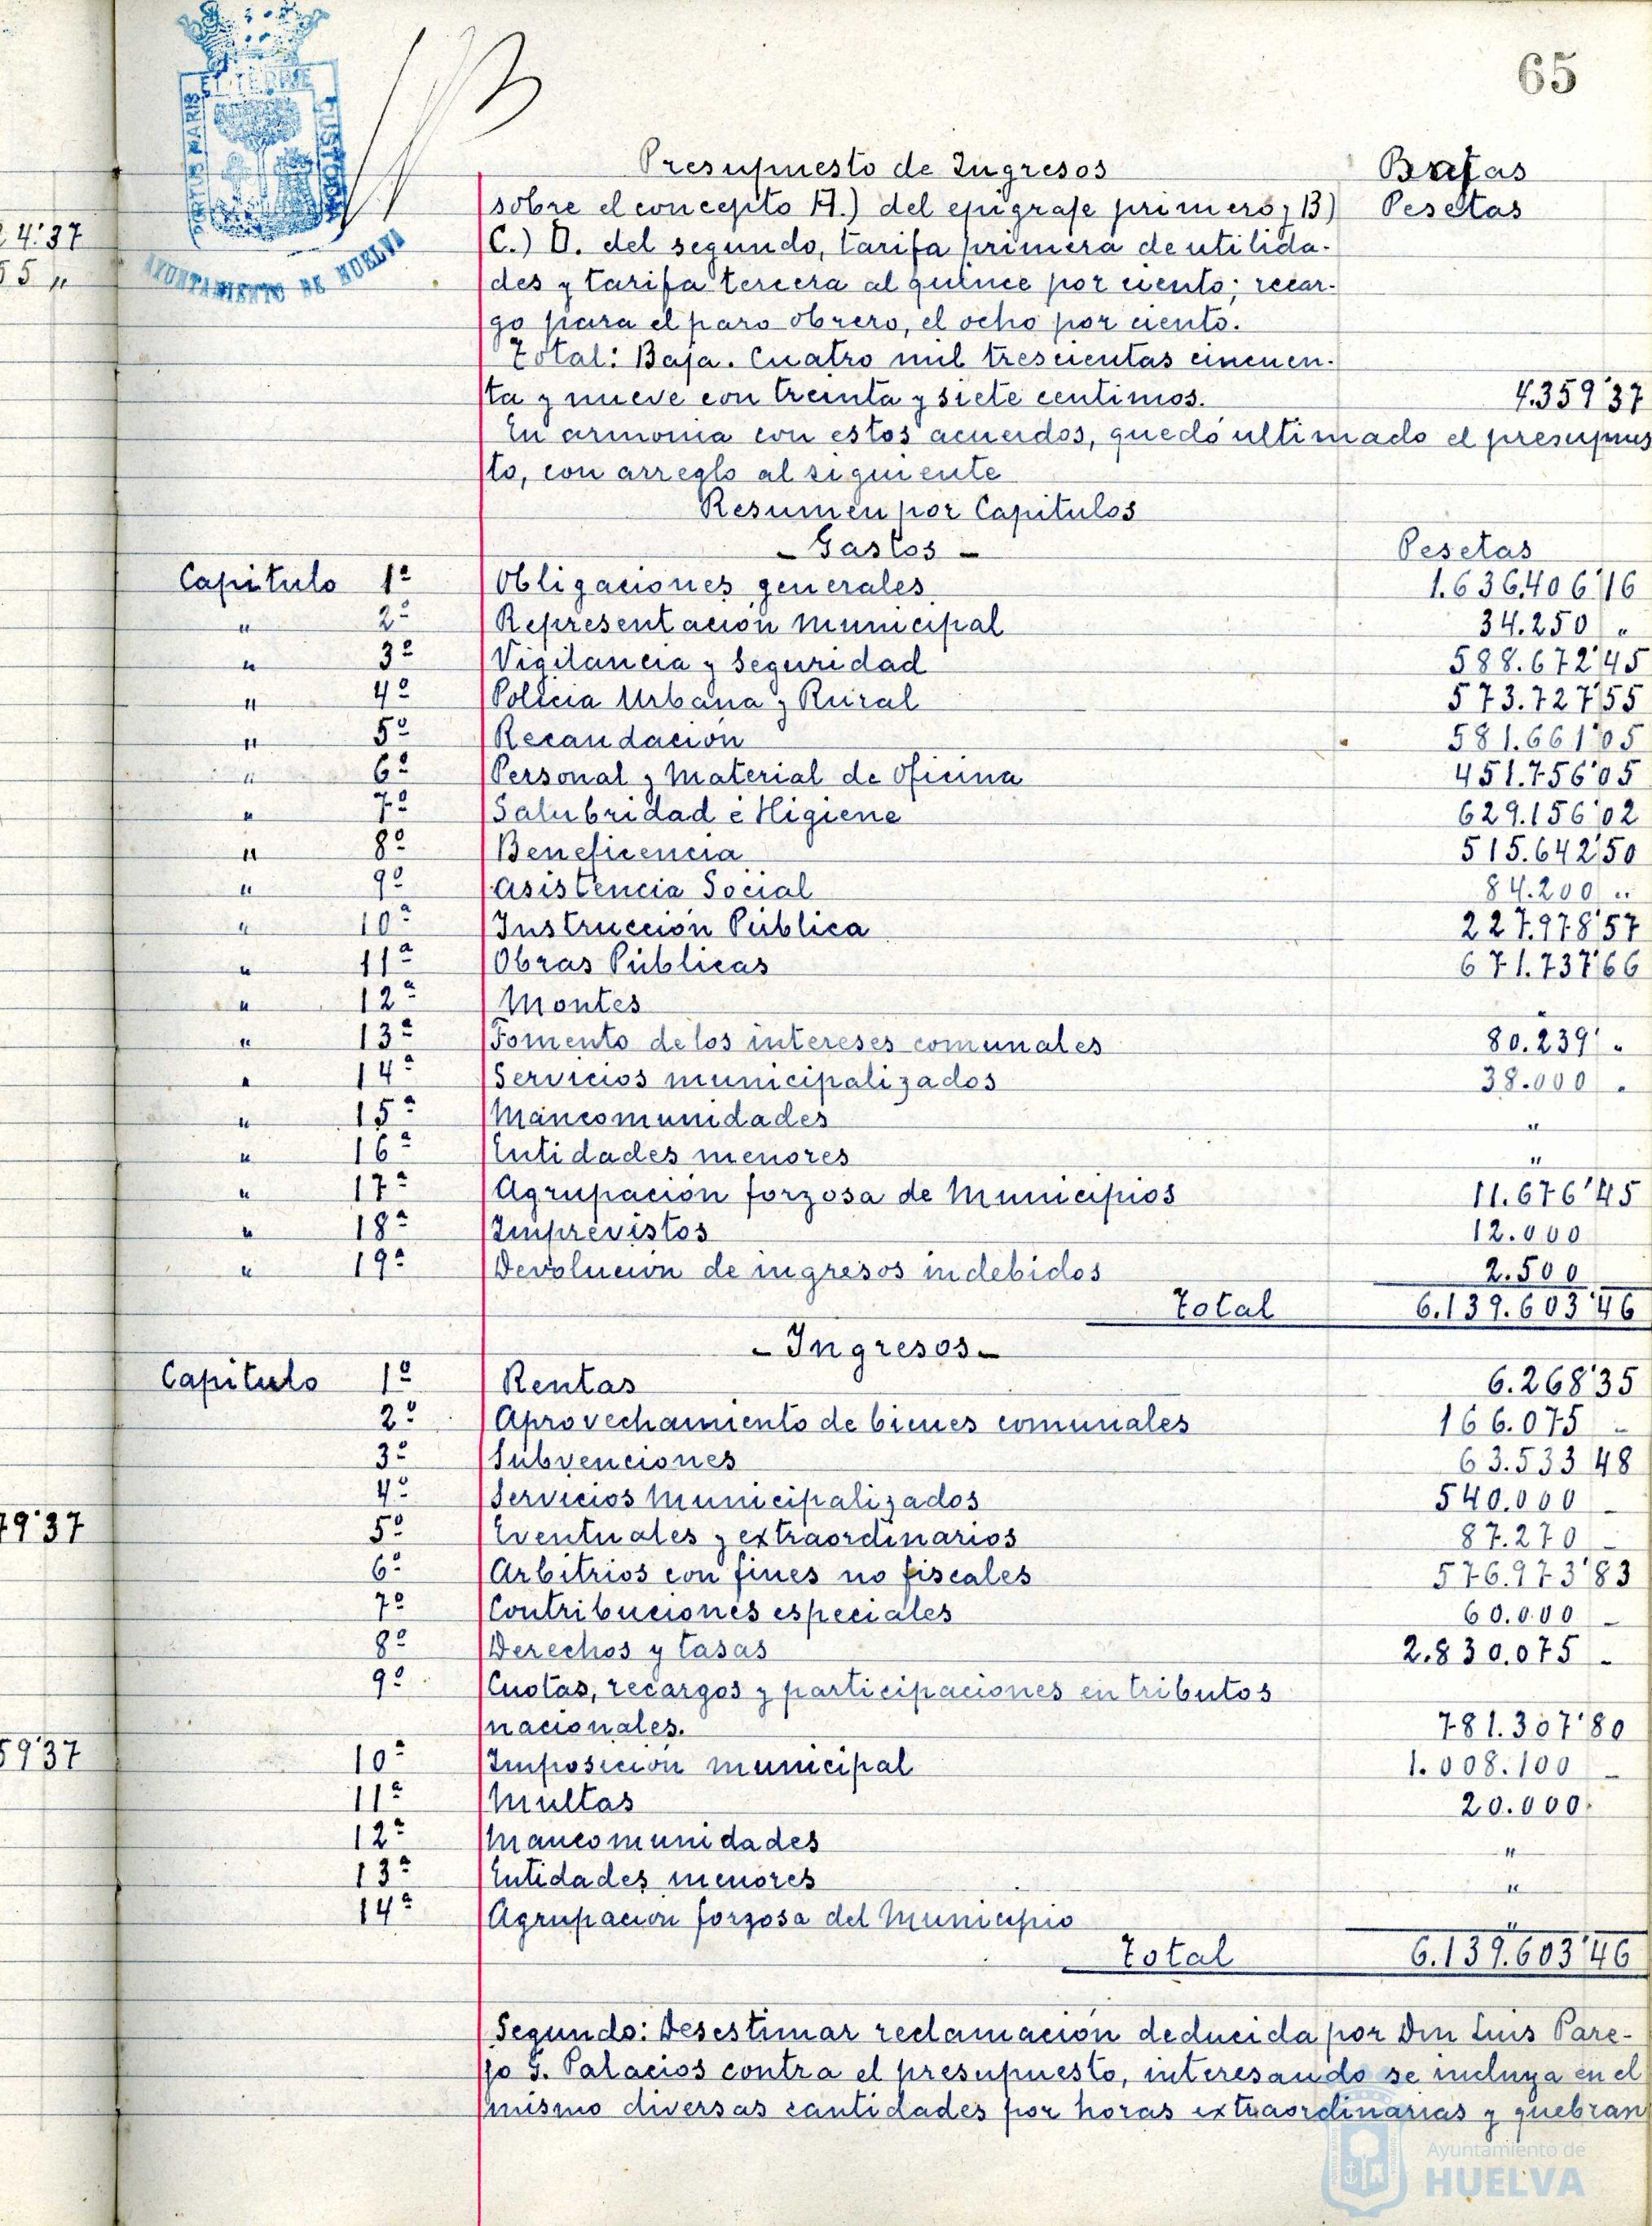 65
PORTUS MARIS ET TERRE CUSTODIA
AYUNTAMIENTO DE HUELVA
4'37
55 "
Presupuesto de Ingresos Bajas
sobre el concepto A.) del epigrafe primero y B) Pesetas
C.) D. del segundo, tarifa primera de utilida-
des y tarifa tercera al quince por ciento; recar-
go para el paro obrero, el ocho por ciento.
Total: Baja. Cuatro mil trescientas cincuen-
ta y nueve con treinta y siete centimos. 4.359'37
En armonia con estos acuerdos, quedó ultimado el presupues
to, con arreglo al siguiente
Resumen por Capitulos
- Gastos - Pesetas
Capitulo 1º Obligaciones generales 1.636.406'16
" 2º Representación municipal 34.250 "
" 3º Vigilancia y Seguridad 588.672'45
" 4º Policia Urbana y Rural 573.727'55
" 5º Recaudación 581.661'05
" 6º Personal y Material de Oficina 451.756'05
" 7º Salubridad é Higiene 629.156'02
" 8º Beneficencia 515.642'50
" 9º Asistencia Social 84.200 "
" 10º Instrucción Pública 227.978'57
" 11º Obras Públicas 671.737'66
" 12º Montes "
" 13º Fomento de los intereses comunales 80.239' "
" 14º Servicios municipalizados 38.000 "
" 15º Mancomunidades "
" 16º Entidades menores "
" 17º Agrupación forzosa de Municipios 11.676'45
" 18º Imprevistos 12.000
" 19º Devolución de ingresos indebidos 2.500
Total 6.139.603'46
- Ingresos -
Capitulo 1º Rentas 6.268'35
2º Aprovechamiento de bienes comunales 166.075 -
3º Subvenciones 63.533 48
4º Servicios Municipalizados 540.000 -
79'37
5º Eventuales y extraordinarios 87.270 -
6º Arbitrios con fines no fiscales 576.973'83
7º Contribuciones especiales 60.000 -
8º Derechos y tasas 2.830.075 -
9º Cuotas, recargos y participaciones en tributos
nacionales. 781.307'80
59'37
10º Imposición municipal 1.008.100 -
11º Multas 20.000.
12º Mancomunidades "
13º Entidades menores "
14º Agrupación forzosa del Municipio "
Total 6.139.603'46
Segundo: Desestimar reclamación deducida por Don Luis Pare-
jo G. Palacios contra el presupuesto, interesando se incluya en el
mismo diversas cantidades por horas extraordinarias y quebran
Ayuntamiento de
HUELVA